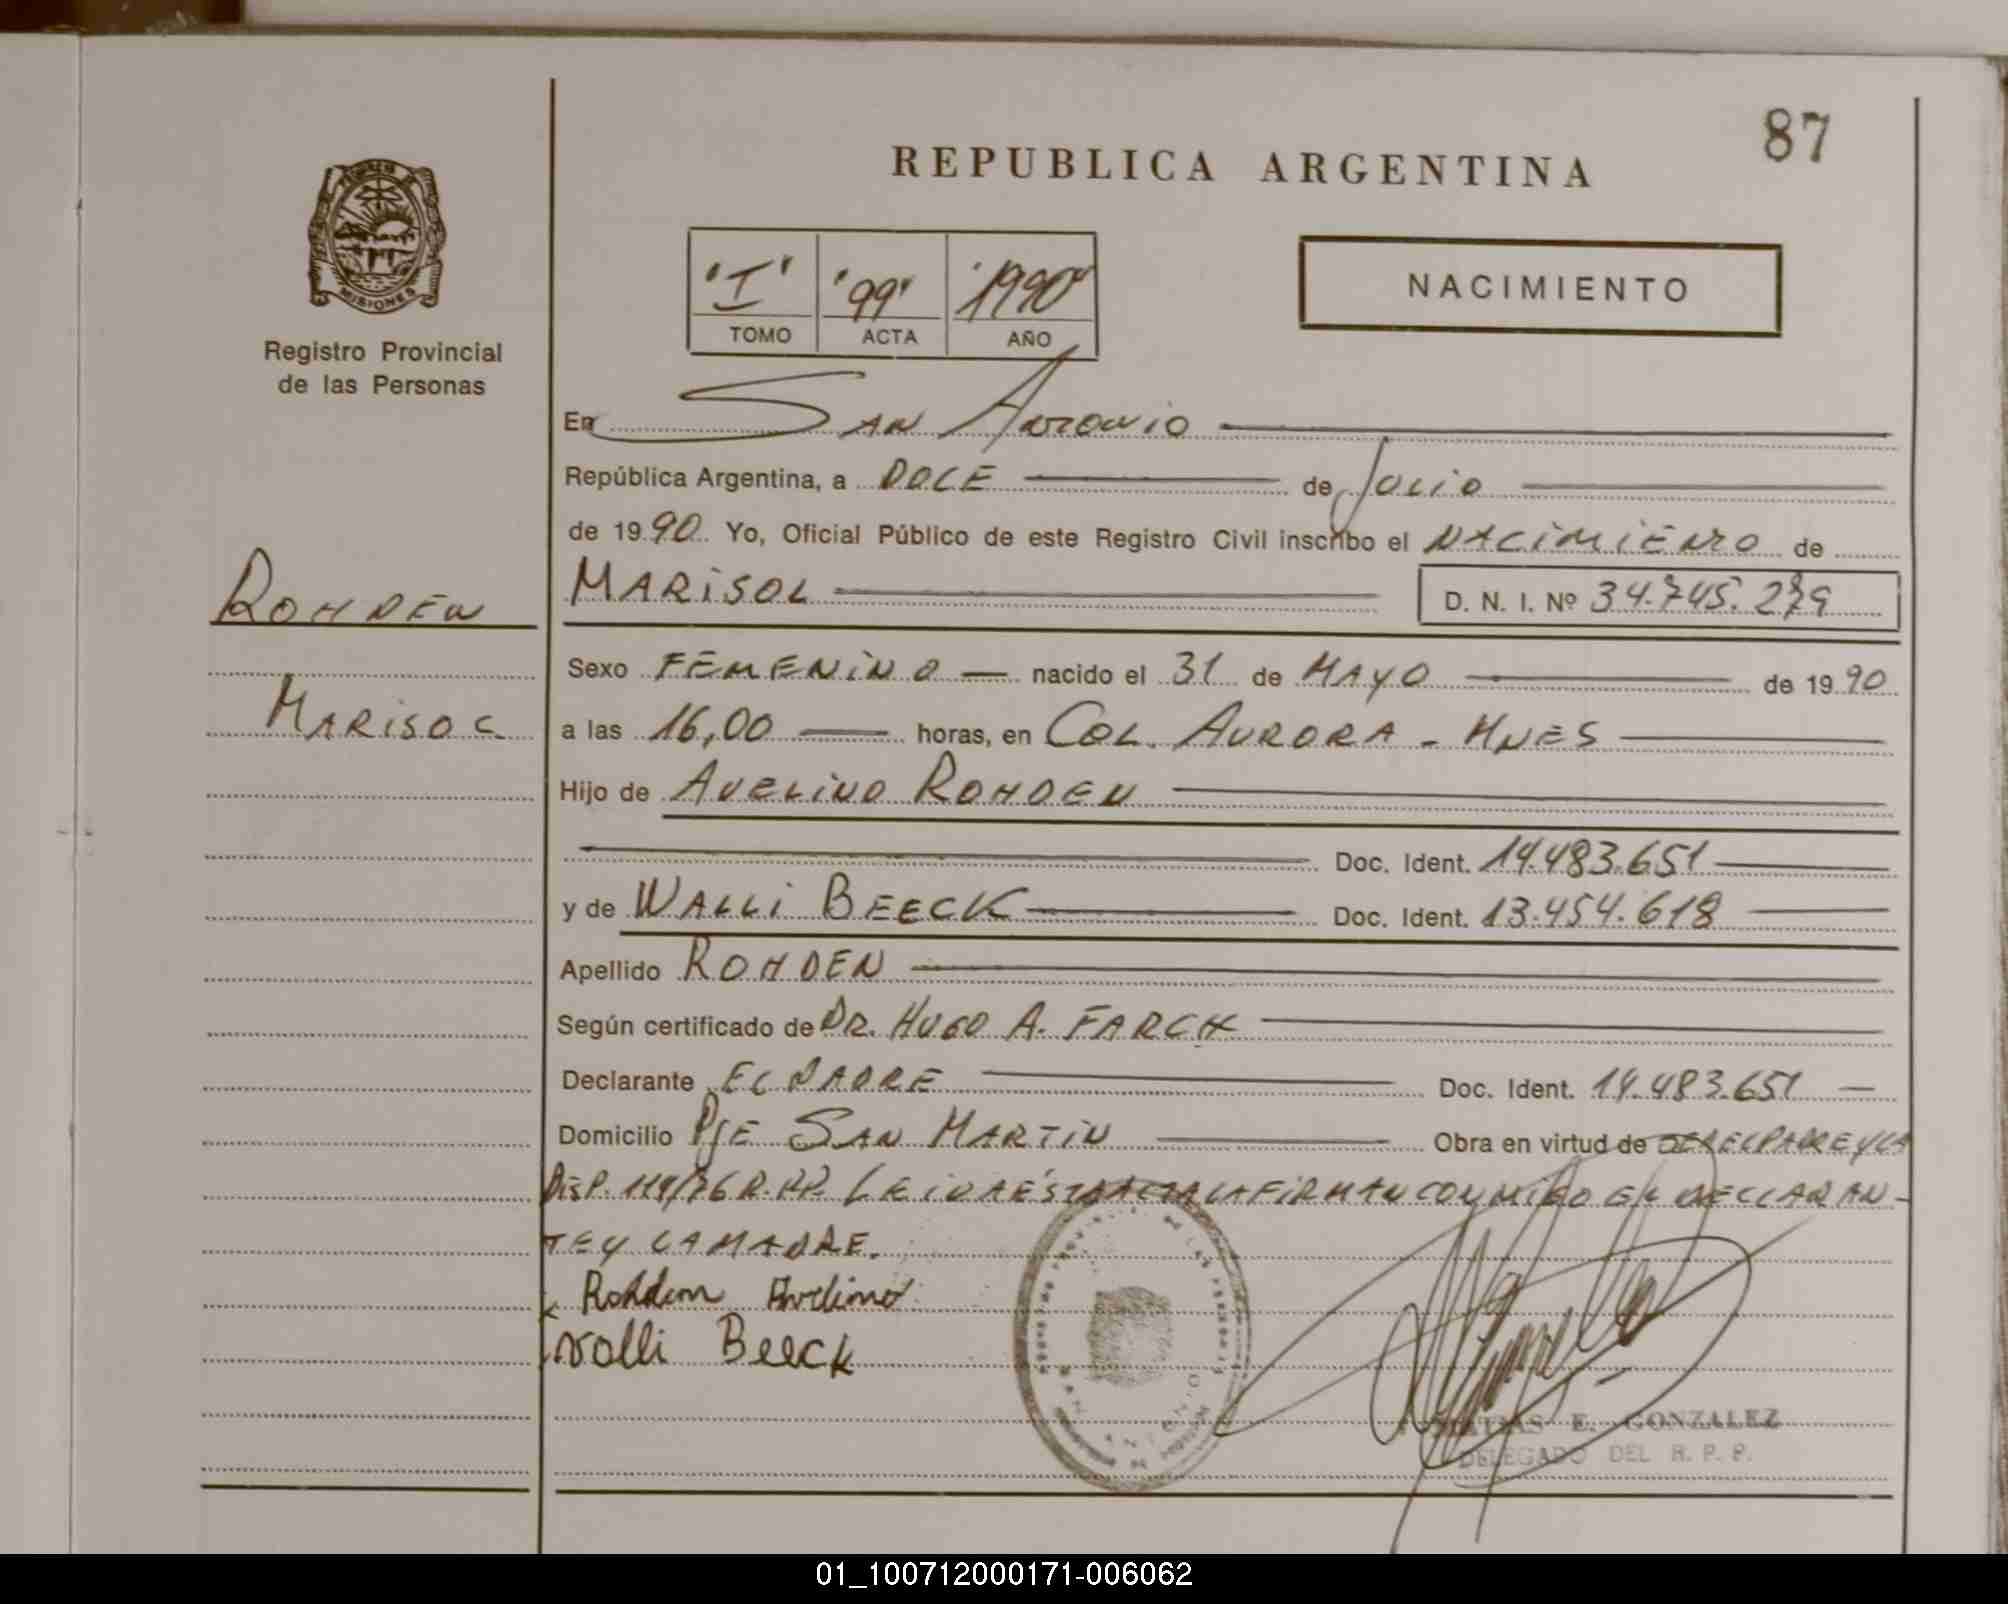 87
REPUBLICA ARGENTINA
MISIONES
Registro Provincial
de las Personas
"I" "99" "1990"
TOMO ACTA AÑO
NACIMIENTO
En San Antonio
República Argentina, a DOCE de Julio
de 1990 Yo, Oficial Público de este Registro Civil inscribo el NACIMIENTO de
ROHDEN
MARISOL D. N. I. Nº 34.745.279
Sexo FEMENINO nacido el 31 de MAYO de 1990
MARISOL
a las 16,00 horas, en COL. AURORA - MNES
Hijo de AVELINO ROHDEN
Doc. Ident. 14.483.651
y de WALLI BEECK Doc. Ident. 13.454.618
Apellido ROHDEN
Según certificado de DR. HUGO A. FARCH
Declarante EL PADRE Doc. Ident. 14.483.651
Domicilio PJE SAN MARTIN Obra en virtud de SER EL PADRE Y LA
DISP. 119/76 R.PP. LEIDA ESTA ACTA LA FIRMAN CONMIGO EL DECLARAN-
TE Y LA MADRE.
Rohden Avelino
Walli Beeck
SAN ANTONIO
E. GONZALEZ
DELEGADO DEL R. P. P.
01_100712000171-006062